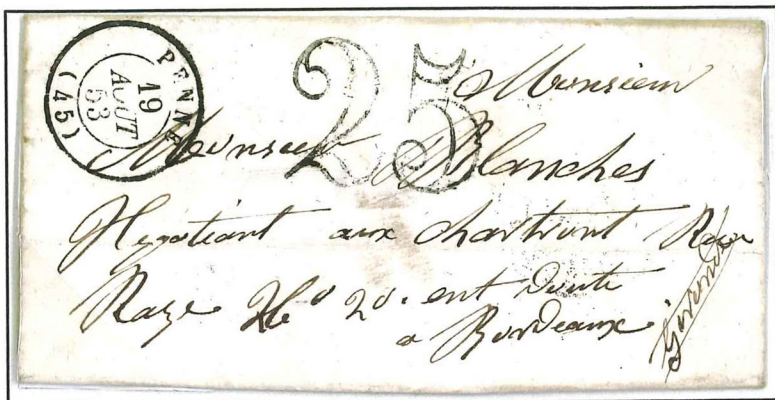 PENNE
19
AOUT
53
(45)
25
Monsieur
Monsieur Blanches
Negotiant aux chartront Rue
Raze 20. ent Droite
a Bordeaux
Gironde